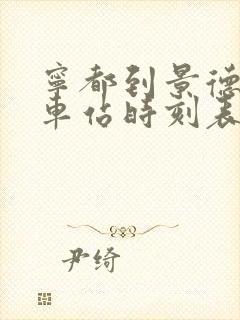 寧都到景德
車佔時刻表
尹绮